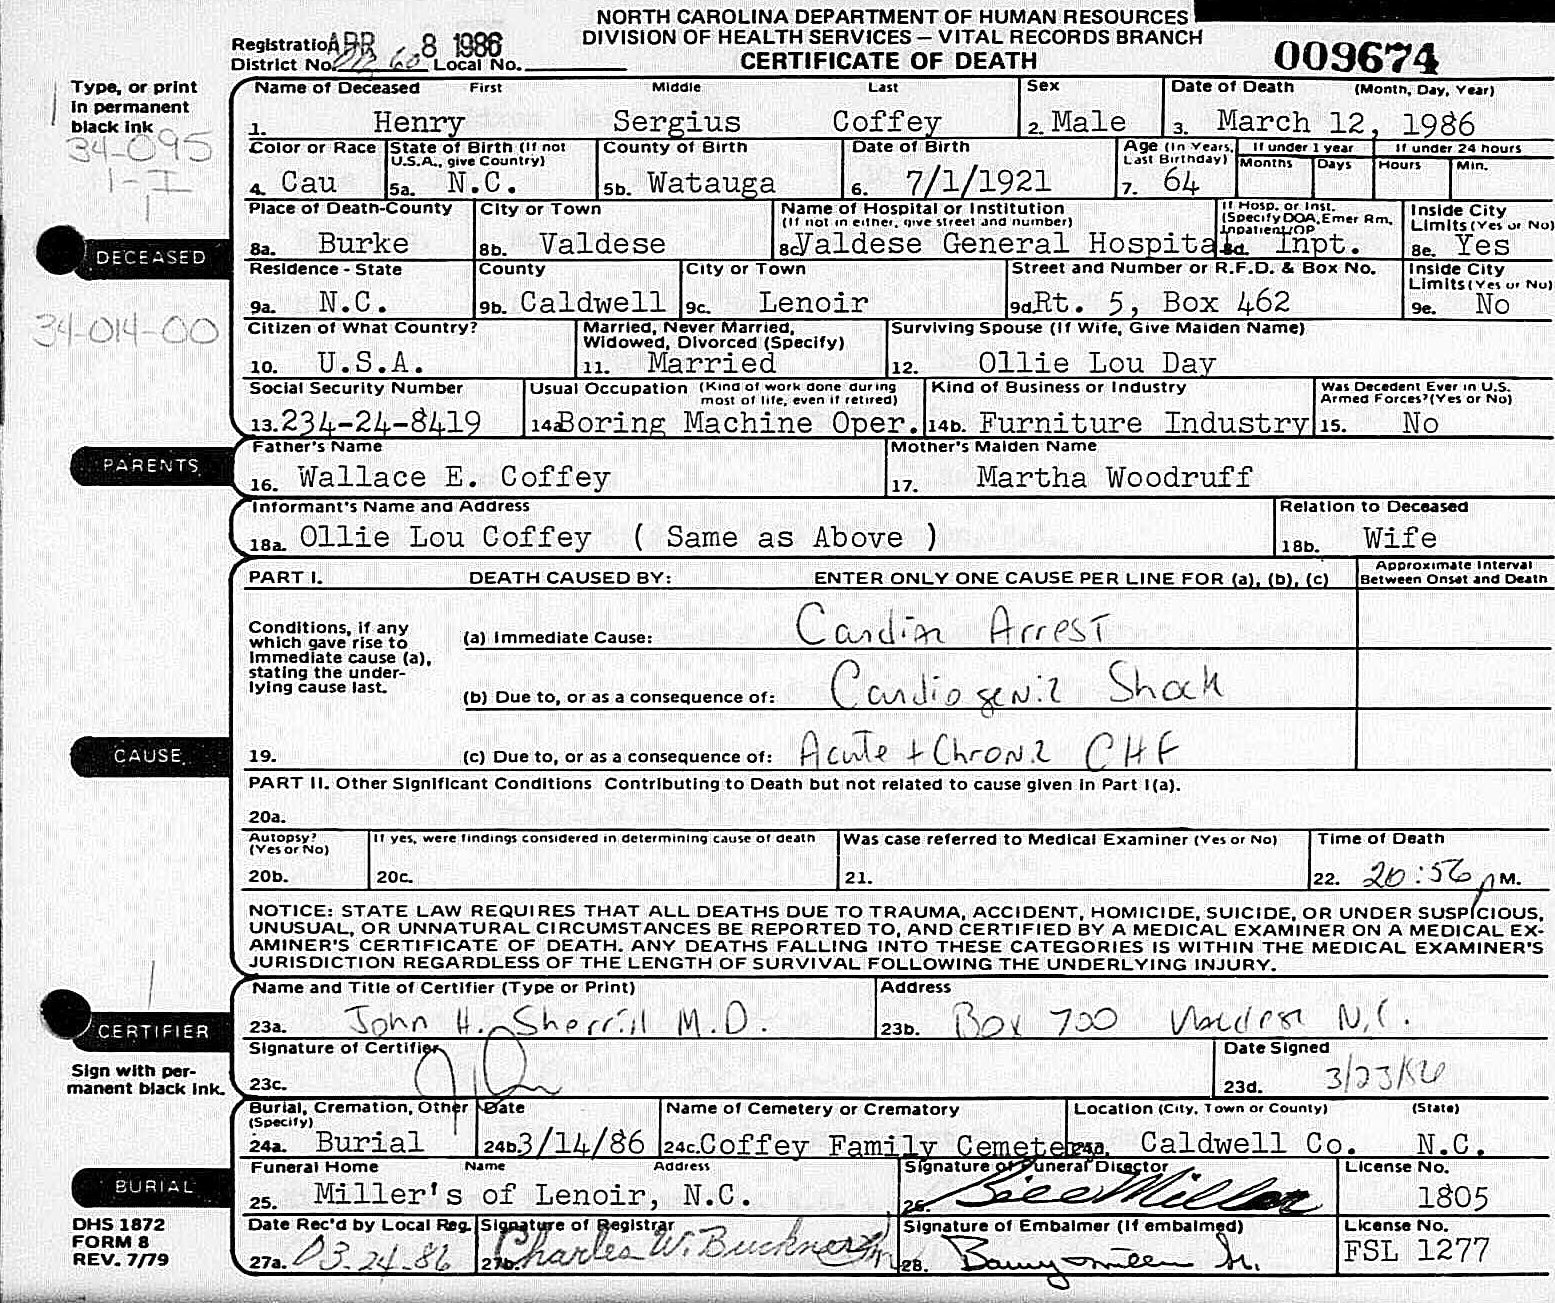 NORTH CAROLINA DEPARTMENT OF HUMAN RESOURCES
DIVISION OF HEALTH SERVICES — VITAL RECORDS BRANCH
CERTIFICATE OF DEATH
009674
Registration APR 8 1986
District No. Local No.
Type, or print
in permanent
black ink
34-095
1-I
1
Name of Deceased First Middle Last Sex Date of Death (Month, Day, Year)
1. Henry Sergius Coffey 2. Male 3. March 12, 1986
Color or Race State of Birth (If not U.S.A., give Country) County of Birth Date of Birth Age (In Years, Last Birthday) If under 1 year If under 24 hours
Months Days Hours Min.
4. Cau 5a. N.C. 5b. Watauga 6. 7/1/1921 7. 64
DECEASED
Place of Death-County City or Town Name of Hospital or Institution (If not in either, give street and number) If Hosp. or Inst. (Specify DOA, Emer Rm, Inpatient/OP Inside City Limits (Yes or No)
8a. Burke 8b. Valdese 8c Valdese General Hospita 8d. Inpt. 8e. Yes
Residence - State County City or Town Street and Number or R.F.D. & Box No. Inside City Limits (Yes or No)
9a. N.C. 9b. Caldwell 9c. Lenoir 9d. Rt. 5, Box 462 9e. No
34-014-00
Citizen of What Country? Married, Never Married, Widowed, Divorced (Specify) Surviving Spouse (If Wife, Give Maiden Name)
10. U.S.A. 11. Married 12. Ollie Lou Day
Social Security Number Usual Occupation (Kind of work done during most of life, even if retired) Kind of Business or Industry Was Decedent Ever in U.S. Armed Forces? (Yes or No)
13. 234-24-8419 14a Boring Machine Oper. 14b. Furniture Industry 15. No
PARENTS
Father's Name Mother's Maiden Name
16. Wallace E. Coffey 17. Martha Woodruff
Informant's Name and Address Relation to Deceased
18a. Ollie Lou Coffey ( Same as Above ) 18b. Wife
PART I. DEATH CAUSED BY: ENTER ONLY ONE CAUSE PER LINE FOR (a), (b), (c) Approximate Interval Between Onset and Death
Conditions, if any
which gave rise to
immediate cause (a),
stating the under-
lying cause last.
(a) Immediate Cause: Cardiac Arrest
(b) Due to, or as a consequence of: Cardiogenic Shock
CAUSE
19. (c) Due to, or as a consequence of: Acute + Chronic CHF
PART II. Other Significant Conditions Contributing to Death but not related to cause given in Part I(a).
20a.
Autopsy? (Yes or No) If yes, were findings considered in determining cause of death Was case referred to Medical Examiner (Yes or No) Time of Death
20b. 20c. 21. 22. 20:56 p M.
NOTICE: STATE LAW REQUIRES THAT ALL DEATHS DUE TO TRAUMA, ACCIDENT, HOMICIDE, SUICIDE, OR UNDER SUSPICIOUS,
UNUSUAL, OR UNNATURAL CIRCUMSTANCES BE REPORTED TO, AND CERTIFIED BY A MEDICAL EXAMINER ON A MEDICAL EX-
AMINER'S CERTIFICATE OF DEATH. ANY DEATHS FALLING INTO THESE CATEGORIES IS WITHIN THE MEDICAL EXAMINER'S
JURISDICTION REGARDLESS OF THE LENGTH OF SURVIVAL FOLLOWING THE UNDERLYING INJURY.
Name and Title of Certifier (Type or Print) Address
23a. John H. Sherrill M.D. 23b. Box 700 Valdese N.C.
CERTIFIER
Signature of Certifier Date Signed
23c. 23d. 3/23/86
Sign with per-
manent black ink.
Burial, Cremation, Other (Specify) Date Name of Cemetery or Crematory Location (City, Town or County) (State)
24a. Burial 24b 3/14/86 24c. Coffey Family Cemetery 24d. Caldwell Co. N.C.
BURIAL
Funeral Home Name Address Signature of Funeral Director License No.
25. Miller's of Lenoir, N.C. 26. Bill Miller 1805
Date Rec'd by Local Reg. Signature of Registrar Signature of Embalmer (If embalmed) License No.
27a. 03-24-86 27b. Charles W. Buckner 28. FSL 1277
DHS 1872
FORM 8
REV. 7/79